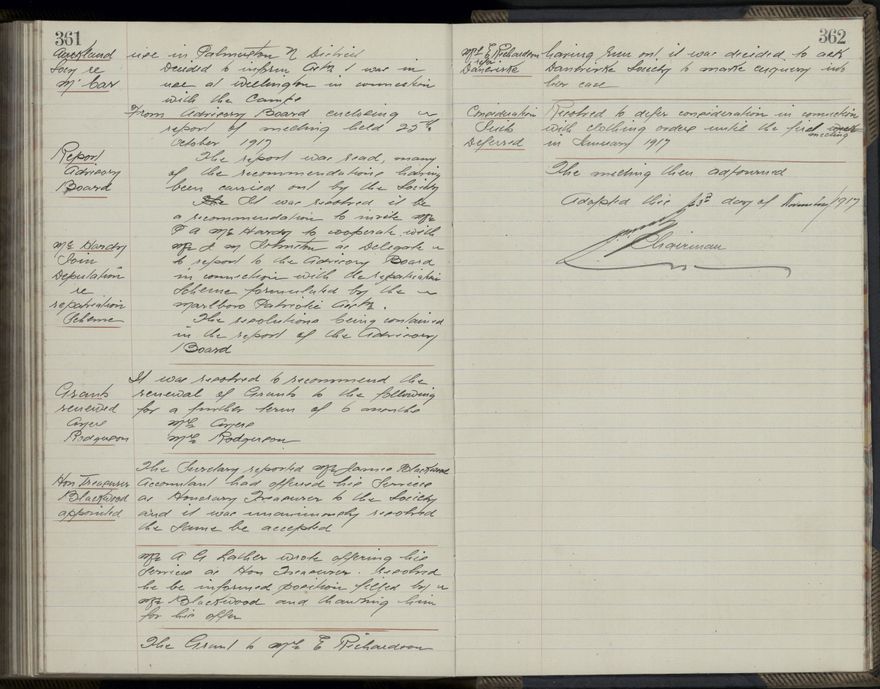 361
Auckland
Socy re
Mr Car
use in Palmerston N District
Decided to inform Auck 1 was in
use at Wellington in connection
with the Camps
From Advisory Board enclosing
report of meeting held 25th
October 1917
Report
Advisory
Board
The report was read, many
of the recommendations having
been carried out by the Society
It was resolved it be
a recommendation to invite Mr
McHardy to cooperate with
Mr J M Johnston as Delegate
to report to the Advisory Board
in connection with the repatriation
Scheme formulated by the
Marlboro Patriotic
McHardy
Join
Deputation
re
repatriation
Scheme
The resolutions being contained
in the report of the Advisory
Board
It was resolved to recommend the
renewal of Grants to the following
for a further term of 6 months
Mrs Ayers
Mrs Rodgerson
Grants
renewed
Ayers
Rodgerson
The Secretary reported Mr James Blackwood
Accountant had offered his Services
as Honorary Treasurer to the Society
and it was unanimously resolved
the same be accepted
Hon Treasurer
Blackwood
appointed
Mr A G wrote offering his
Services as Hon Treasurer. Resolved
he be informed position filled by
Mr Blackwood and thanking him
for his offer
The Grant to Mrs E Richardson
362
Mrs E Richardson
Danevirke
having run out it was decided to ask
Danevirke Society to make enquiry into
her case
Consideration
Suits
Deferred
Resolved to defer consideration in connection
with clothing orders until the first
meeting
in January 1917
The meeting then adjourned
Adopted this 23rd day of November 1917
Chairman